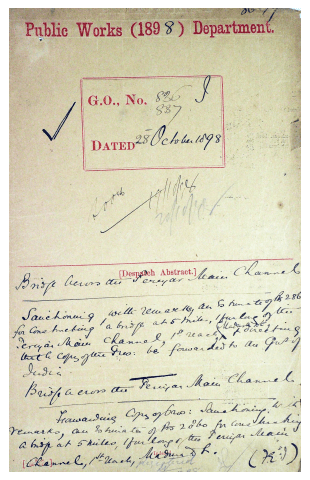 Public Works (1898) Department.
G.O., No. 836 I
887
DATED 28 October 1898
[Despatch Abstract.]
Bridge across the Periyar Main Channel
Sanctioning with remarks an Estimate of Rs 2860
for constructing a bridge at 5 miles, 1 furlong of the
Periyar Main Channel,
that a copy of the Pro: be forwarded to the Govt of
India
Bridge across the Periyar Main Channel.
Forwarding Copy of Pro: Sanctioning, with
remarks, an Estimate of Rs 2860 for constructing
a bridge at 5 miles, 1 furlong, the Periyar Main
Channel,